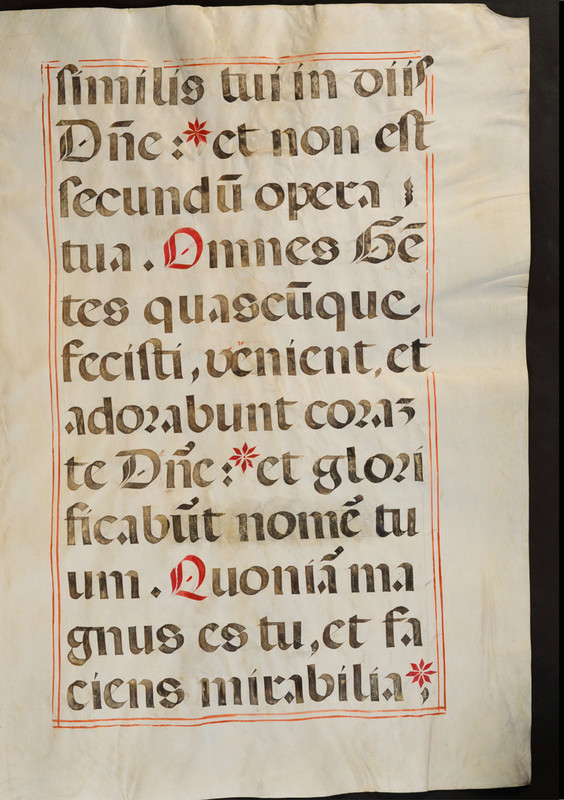 similis tui in diis
Dn̄e : * et non est
secundū opera
tua . Omnes Gē
tes quascūque
fecisti, venient, et
adorabunt coraʒ
te Dn̄e : * et glori
ficabūt nomē tu
um . Quoniā ma
gnus es tu, et fa
ciens mirabilia * ;